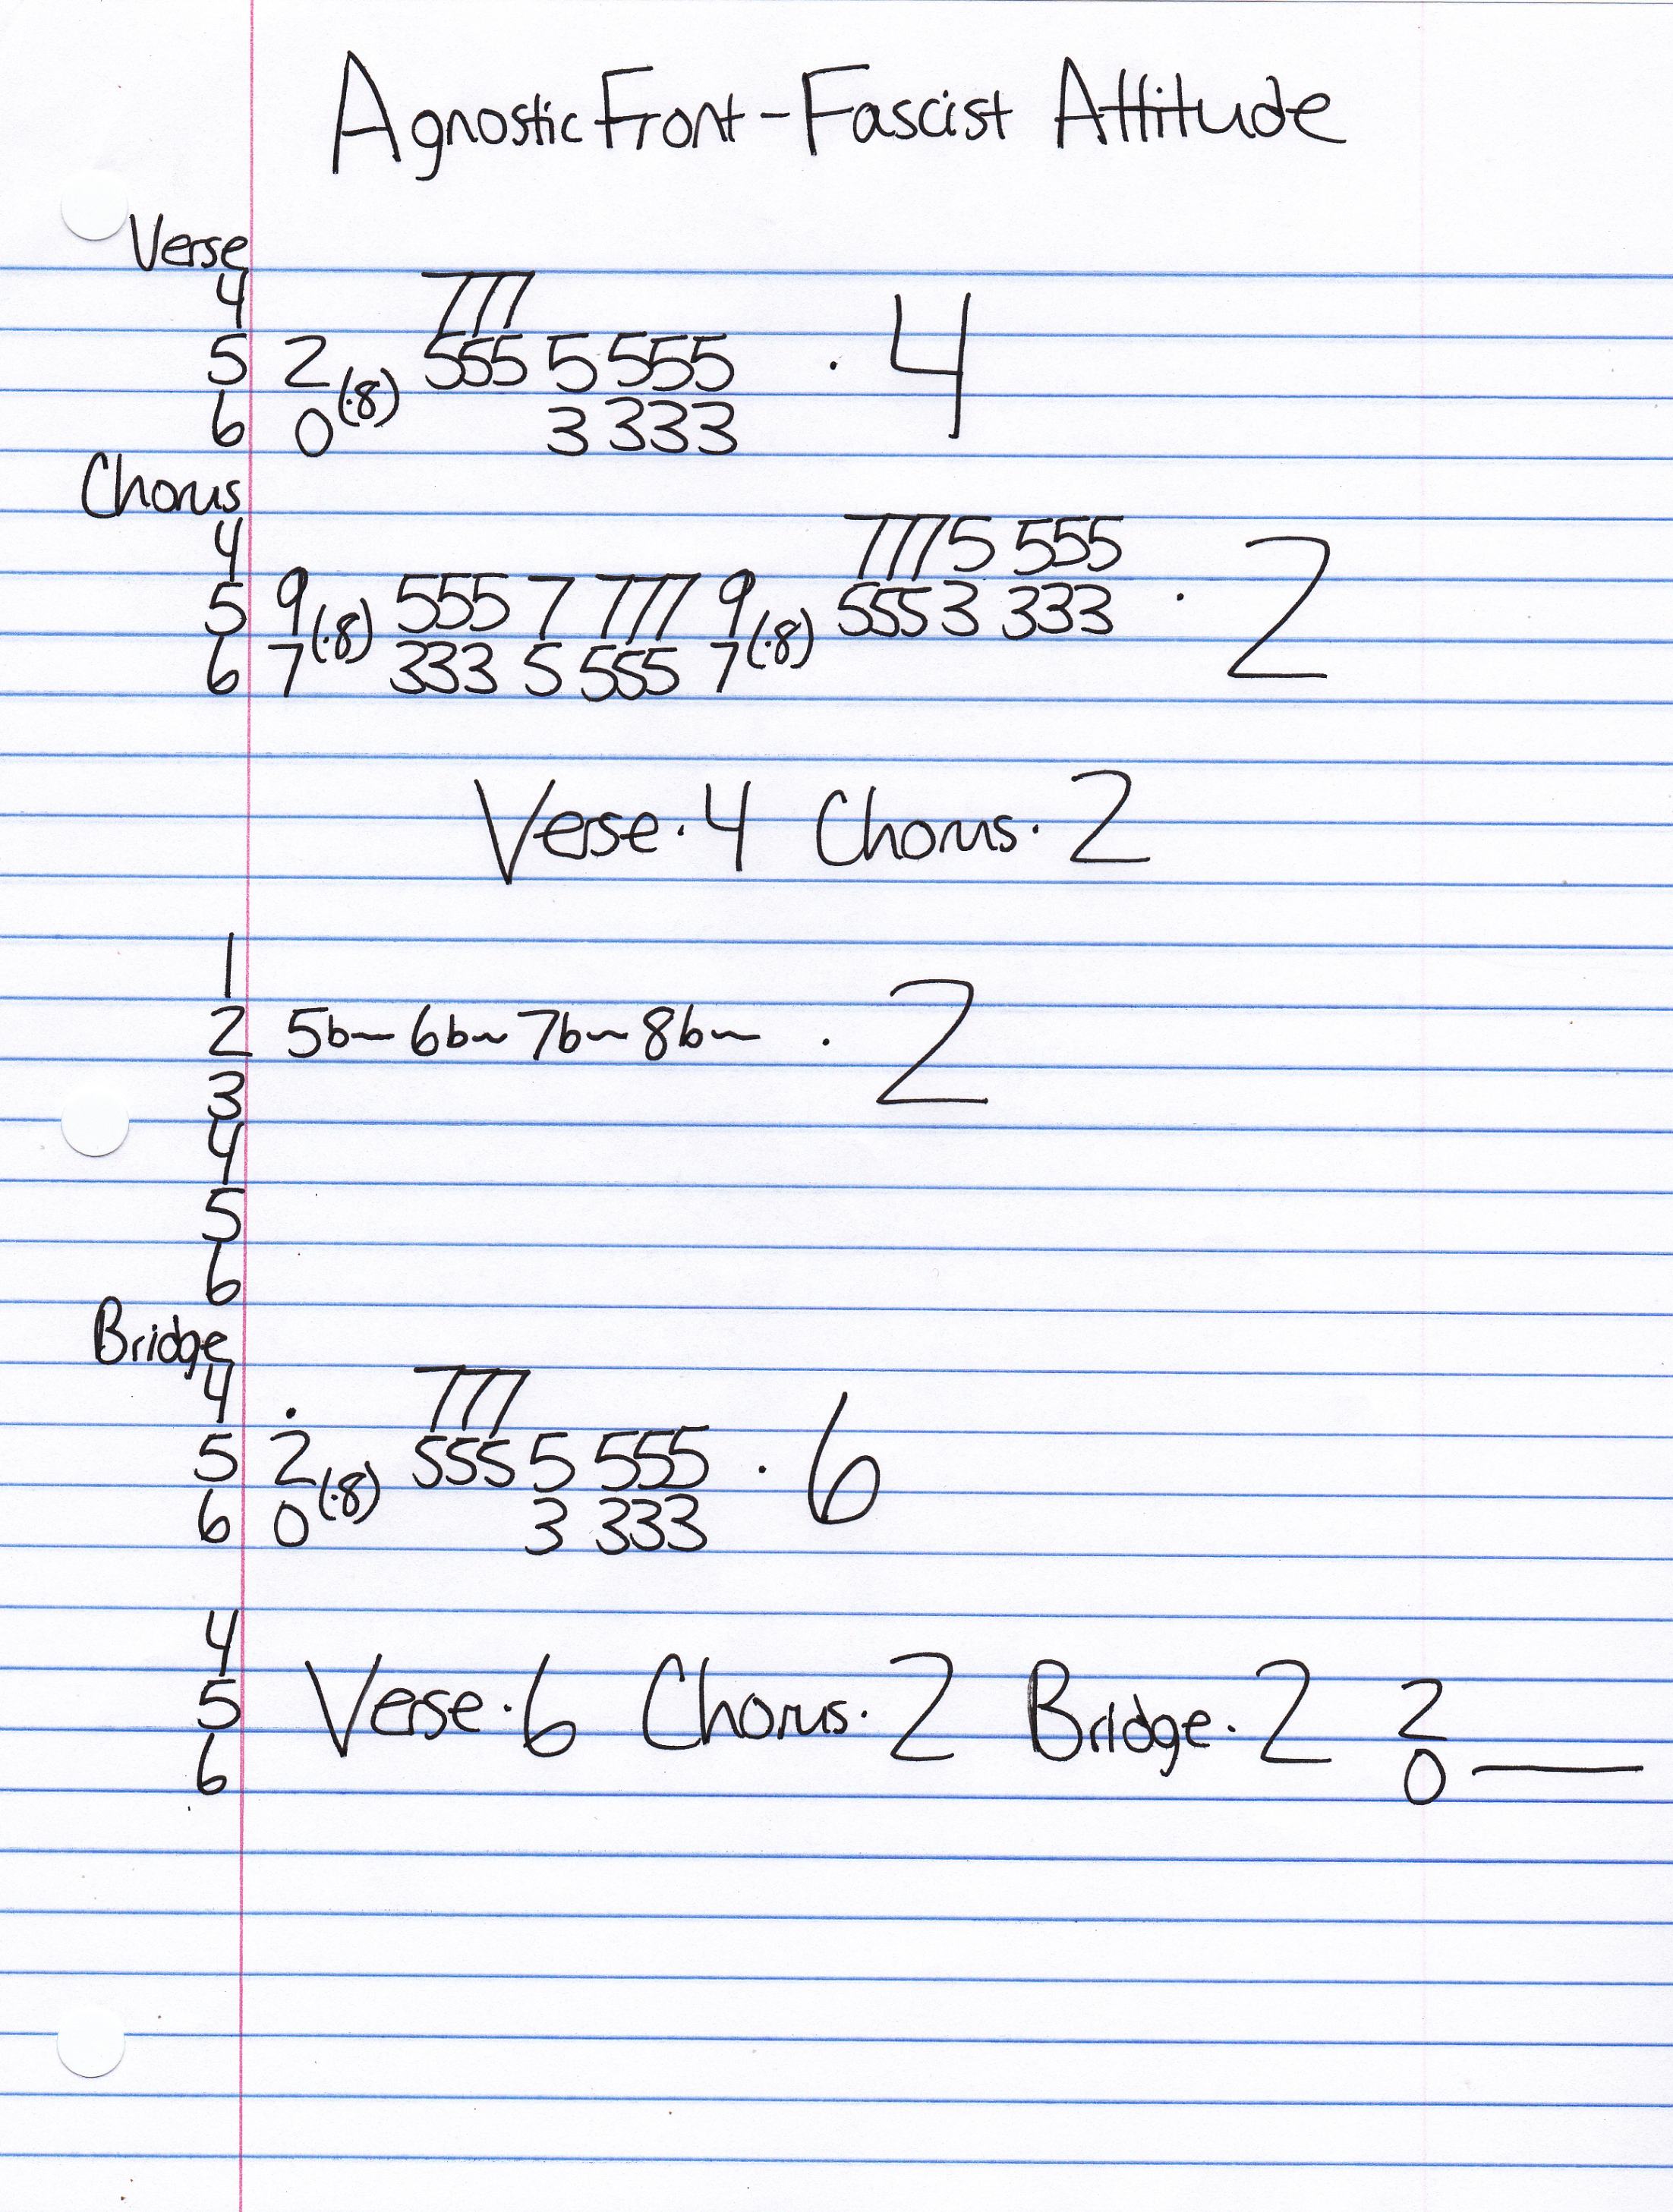 Agnostic Front - Fascist Attitude
Verse
4 777
5 2 (·8) 555 5 555 · 4
6 0 3 333
Chorus
4 777 5 555
5 9 (·8) 555 7 777 9 (·8) 555 3 333 · 2
6 7 333 5 555 7
Verse · 4 Chorus · 2
1
2 5b~ 6b~ 7b~ 8b~ · 2
3
4
5
6
Bridge
4 . 777
5 2 (·8) 555 5 555 · 6
6 0 3 333
4
5 Verse · 6 Chorus · 2 Bridge · 2 2
6 0 —